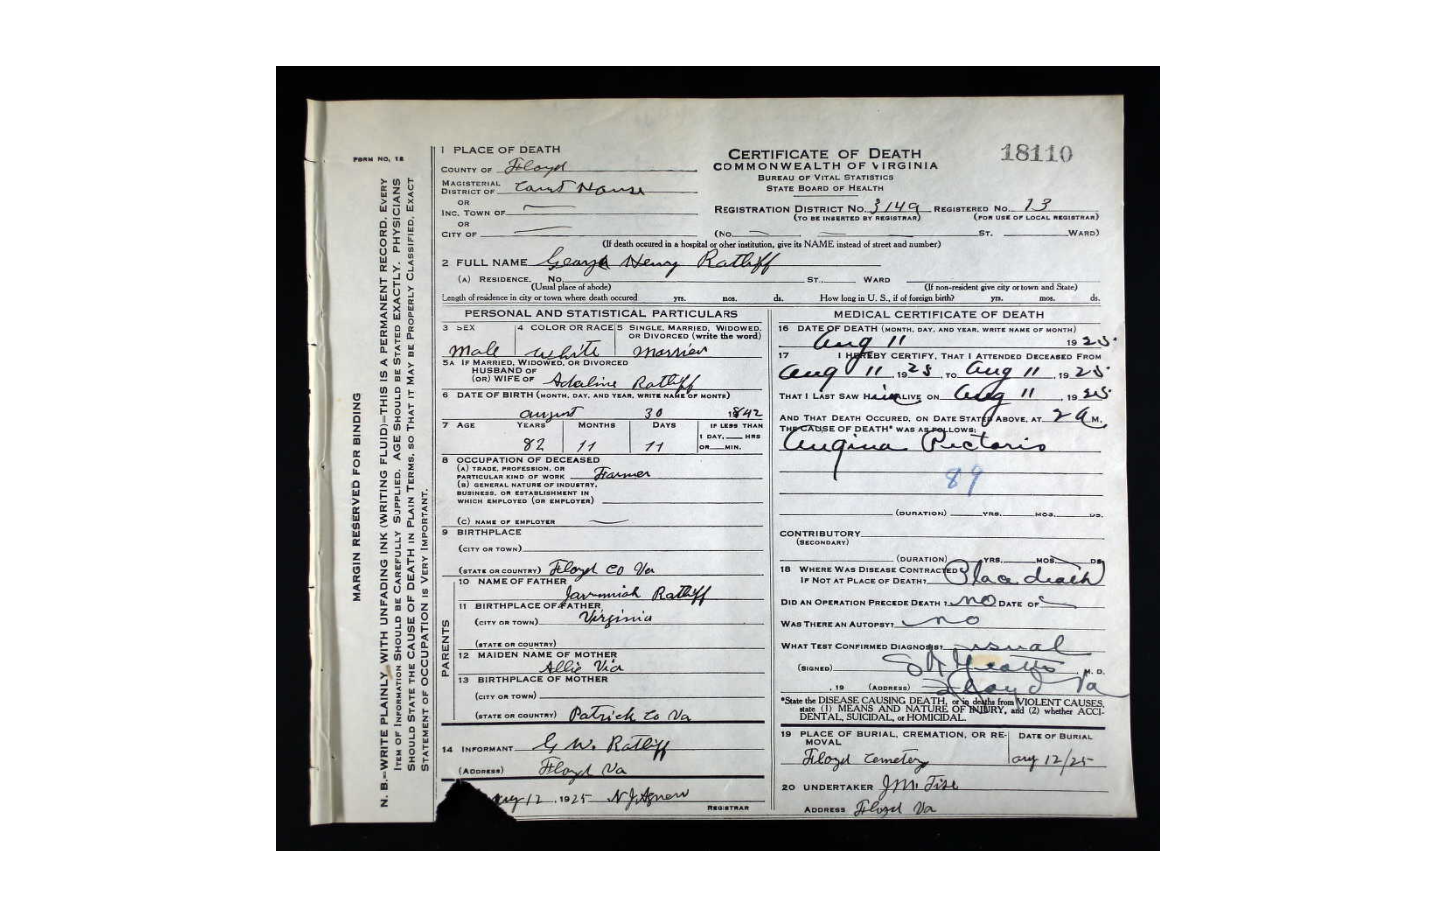 FORM NO. 18
MARGIN RESERVED FOR BINDING
N. B.—WRITE PLAINLY WITH UNFADING INK (WRITING FLUID)—THIS IS A PERMANENT RECORD. EVERY
ITEM OF INFORMATION SHOULD BE CAREFULLY SUPPLIED. AGE SHOULD BE STATED EXACTLY. PHYSICIANS
SHOULD STATE THE CAUSE OF DEATH IN PLAIN TERMS, SO THAT IT MAY BE PROPERLY CLASSIFIED. EXACT
STATEMENT OF OCCUPATION IS VERY IMPORTANT.
CERTIFICATE OF DEATH
COMMONWEALTH OF VIRGINIA
BUREAU OF VITAL STATISTICS
STATE BOARD OF HEALTH
18110
1 PLACE OF DEATH
COUNTY OF Floyd
MAGISTERIAL
DISTRICT OF Court House
OR
INC. TOWN OF
OR
CITY OF
REGISTRATION DISTRICT NO. 3149 REGISTERED NO. 13
(TO BE INSERTED BY REGISTRAR) (FOR USE OF LOCAL REGISTRAR)
(NO. ST. WARD)
(If death occured in a hospital or other institution, give its NAME instead of street and number)
2 FULL NAME George Henry Ratliff
(A) RESIDENCE. NO. ST. WARD
(Usual place of abode) (If non-resident give city or town and State)
Length of residence in city or town where death occured yrs. mos. ds. How long in U. S., if of foreign birth? yrs. mos. ds.
PERSONAL AND STATISTICAL PARTICULARS
3 SEX 4 COLOR OR RACE 5 SINGLE, MARRIED, WIDOWED,
OR DIVORCED (write the word)
Male White Married
5A IF MARRIED, WIDOWED, OR DIVORCED
HUSBAND OF
(OR) WIFE OF Adaline Ratliff
6 DATE OF BIRTH (MONTH, DAY, AND YEAR, WRITE NAME OF MONTH)
August 30 1842
7 AGE YEARS MONTHS DAYS IF LESS THAN
1 DAY, HRS
82 11 11 OR MIN.
8 OCCUPATION OF DECEASED
(A) TRADE, PROFESSION, OR
PARTICULAR KIND OF WORK Farmer
(B) GENERAL NATURE OF INDUSTRY,
BUSINESS, OR ESTABLISHMENT IN
WHICH EMPLOYED (OR EMPLOYER)
(C) NAME OF EMPLOYER
9 BIRTHPLACE
(CITY OR TOWN)
(STATE OR COUNTRY) Floyd Co Va
PARENTS
10 NAME OF FATHER
Jaremiah Ratliff
11 BIRTHPLACE OF FATHER
(CITY OR TOWN) Virginia
(STATE OR COUNTRY)
12 MAIDEN NAME OF MOTHER
Allie Via
13 BIRTHPLACE OF MOTHER
(CITY OR TOWN)
(STATE OR COUNTRY) Patrick Co Va
14 INFORMANT G W. Ratliff
(ADDRESS) Floyd Va
Aug 12, 1925 N J Agnew
REGISTRAR
MEDICAL CERTIFICATE OF DEATH
16 DATE OF DEATH (MONTH, DAY, AND YEAR, WRITE NAME OF MONTH)
Aug 11 1925
17 I HEREBY CERTIFY, THAT I ATTENDED DECEASED FROM
Aug 11, 1925 TO Aug 11, 1925
THAT I LAST SAW HIM ALIVE ON Aug 11, 1925
AND THAT DEATH OCCURED, ON DATE STATED ABOVE, AT 2 A M.
THE CAUSE OF DEATH* WAS AS FOLLOWS:
Angina Pectoris
89
(DURATION) YRS. MOS. DS.
CONTRIBUTORY
(SECONDARY)
(DURATION) YRS. MOS. DS
18 WHERE WAS DISEASE CONTRACTED
IF NOT AT PLACE OF DEATH? Place death
DID AN OPERATION PRECEDE DEATH? no DATE OF
WAS THERE AN AUTOPSY? no
WHAT TEST CONFIRMED DIAGNOSIS? usual
(SIGNED) M. D.
, 19 (ADDRESS) Floyd Va
*State the DISEASE CAUSING DEATH, or in deaths from VIOLENT CAUSES,
state (1) MEANS AND NATURE OF INJURY, and (2) whether ACCI-
DENTAL, SUICIDAL, or HOMICIDAL.
19 PLACE OF BURIAL, CREMATION, OR RE-
MOVAL DATE OF BURIAL
Floyd Cemetery Aug 12/25
20 UNDERTAKER J M. Tise
ADDRESS Floyd Va